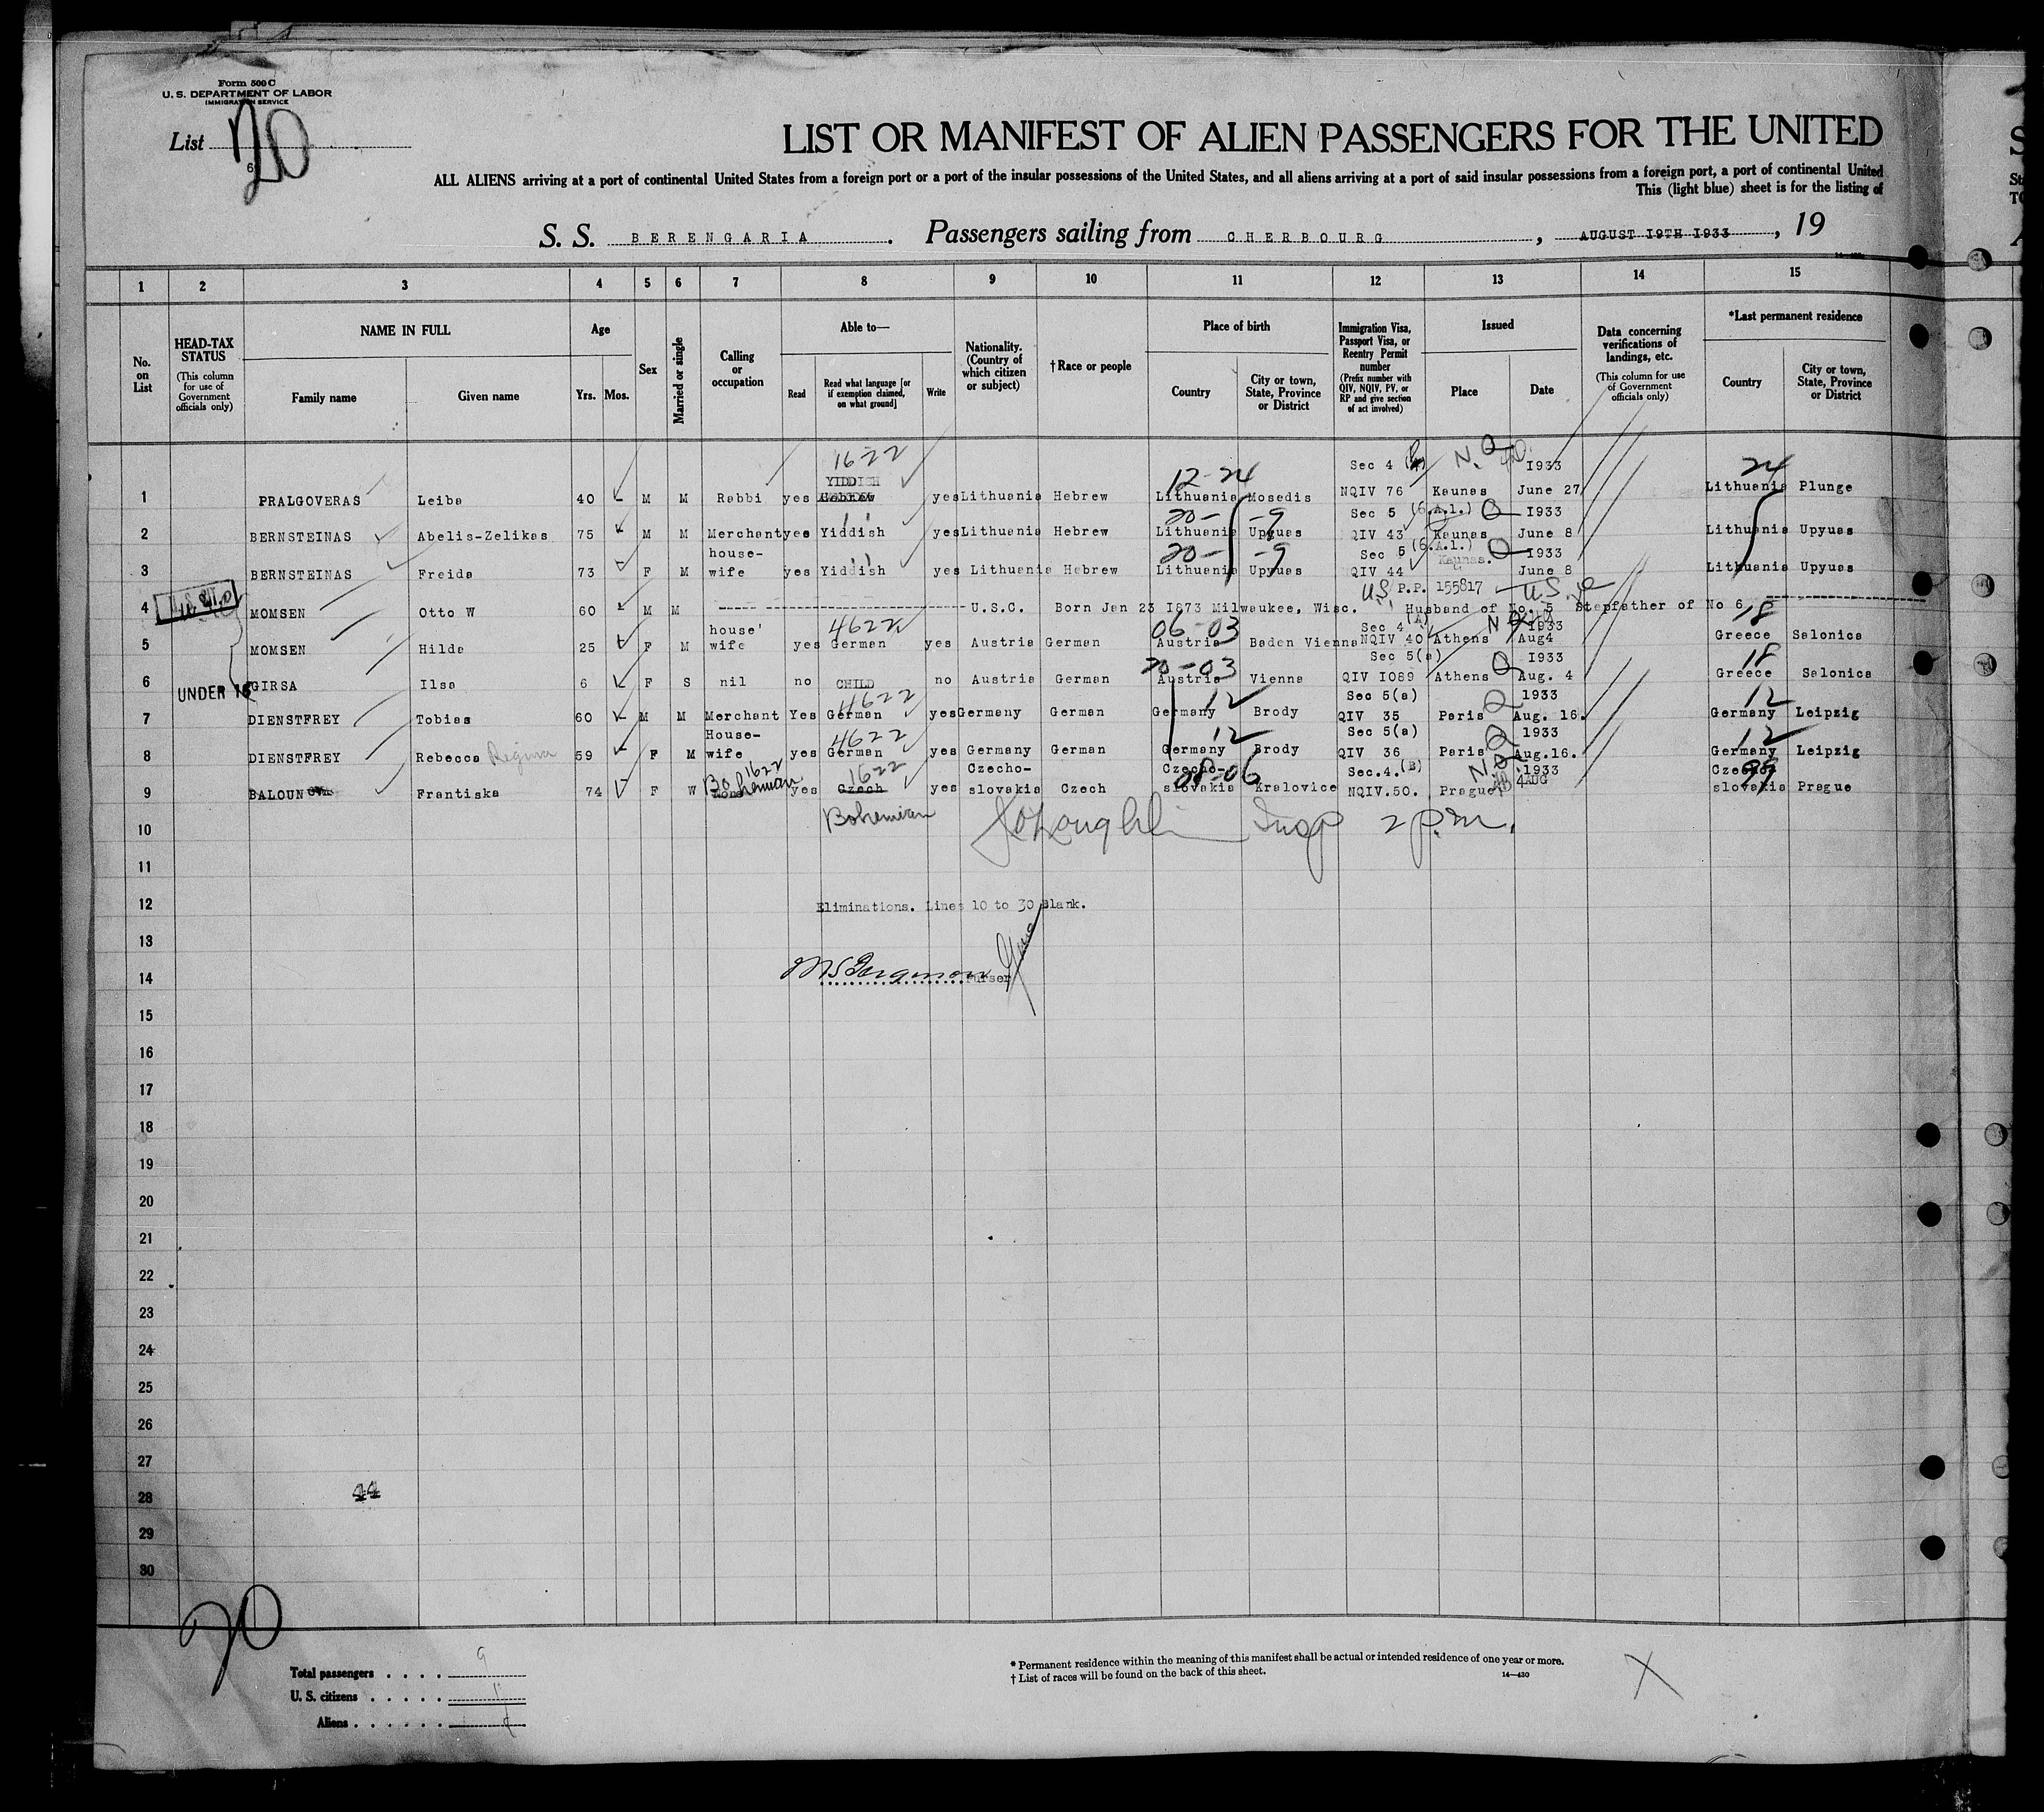 Form 500 C
U. S. DEPARTMENT OF LABOR
IMMIGRATION SERVICE
List 20
LIST OR MANIFEST OF ALIEN PASSENGERS FOR THE UNITED
ALL ALIENS arriving at a port of continental United States from a foreign port or a port of the insular possessions of the United States, and all aliens arriving at a port of said insular possessions from a foreign port, a port of continental United
This (light blue) sheet is for the listing of
S. S. BERENGARIA. Passengers sailing from CHERBOURG, AUGUST 19TH 1933, 19
1 2 3 4 5 6 7 8 9 10 11 12 13 14 15
No. on List
HEAD-TAX STATUS (This column for use of Government officials only)
NAME IN FULL
Family name Given name
Age
Yrs. Mos.
Sex
Married or single
Calling or occupation
Able to—
Read
Read what language [or if exemption claimed, on what ground]
Write
Nationality. (Country of which citizen or subject)
†Race or people
Place of birth
Country
City or town, State, Province or District
Immigration Visa, Passport Visa, or Reentry Permit number (Prefix number with QIV, NQIV, PV, or RP and give section of act involved)
Issued
Place Date
Data concerning verifications of landings, etc. (This column for use of Government officials only)
*Last permanent residence
Country
City or town, State, Province or District
1622 12-24 Sec 4 N.Q. 1933 24
YIDDISH
1 PRALGOVERAS Leiba 40 M M Rabbi yes Hebrew yes Lithuania Hebrew Lithuania Mosedis NQIV 76 Kaunas June 27 Lithuania Plunge
20- -9 Sec 5 (6.A.1.) Q 1933
2 BERNSTEINAS Abelis-Zelikas 75 M M Merchant yes Yiddish yes Lithuania Hebrew Lithuania Upyuas QIV 43 Kaunas June 8 Lithuania Upyuas
house- 20- -9 Sec 5 (6.A.1.) Q 1933
3 BERNSTEINAS Freida 73 F M wife yes Yiddish yes Lithuania Hebrew Lithuania Upyuas QIV 44 Kaunas. June 8 Lithuania Upyuas
U.S. P.P. 155817
4 MOMSEN Otto W 60 M M U.S.C. Born Jan 23 1873 Milwaukee, Wisc. Husband of No. 5 Stepfather of No 6
house' 4622 06-03 Sec 4 (A) 1933 18
5 MOMSEN Hilda 25 F M wife yes German yes Austria German Austria Baden Vienna NQIV 40 Athens Aug4 Greece Salonica
20-03 Sec 5(a) Q 1933 18
6 UNDER 16 GIRSA Ilsa 6 F S nil no CHILD no Austria German Austria Vienna QIV 1089 Athens Aug. 4 Greece Salonica
4622 12 Sec 5(a) Q 1933 12
7 DIENSTFREY Tobias 60 M M Merchant Yes German yes Germany German Germany Brody QIV 35 Paris Aug. 16. Germany Leipzig
House- 4622 12 Sec 5(a) Q 1933 12
8 DIENSTFREY Rebecca Regina 59 F M wife yes German yes Germany German Germany Brody QIV 36 Paris Aug.16. Germany Leipzig
1622 1622 Czecho- Czecho- 08-06 Sec.4.(B) 1933 Czecho-
9 BALOUN Frantiska 74 F W Bohemian yes Czech yes slovakia Czech slovakia Kralovice NQIV.50. Prague 4AUG slovakia Prague
10 Bohemian Insp 2 p.m.
11
12 Eliminations. Lines 10 to 30 Blank.
13
14 Purser
15
16
17
18
19
20
21
22
23
24
25
26
27
28 44
29
30
20
Total passengers . . . . 9
U. S. citizens . . . . . 1
Aliens . . . . . .
* Permanent residence within the meaning of this manifest shall be actual or intended residence of one year or more.
† List of races will be found on the back of this sheet. 14—430